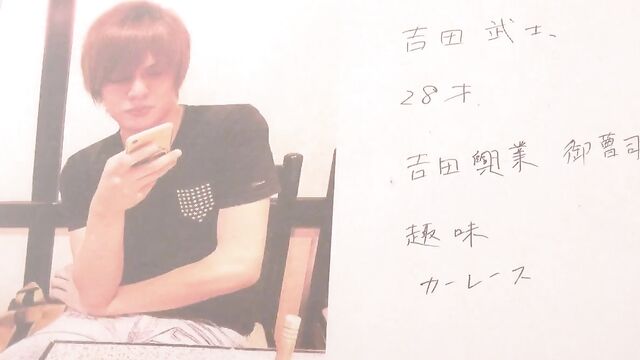 吉田 武士、
28才.
吉田興業 御曹司
趣味
カーレース